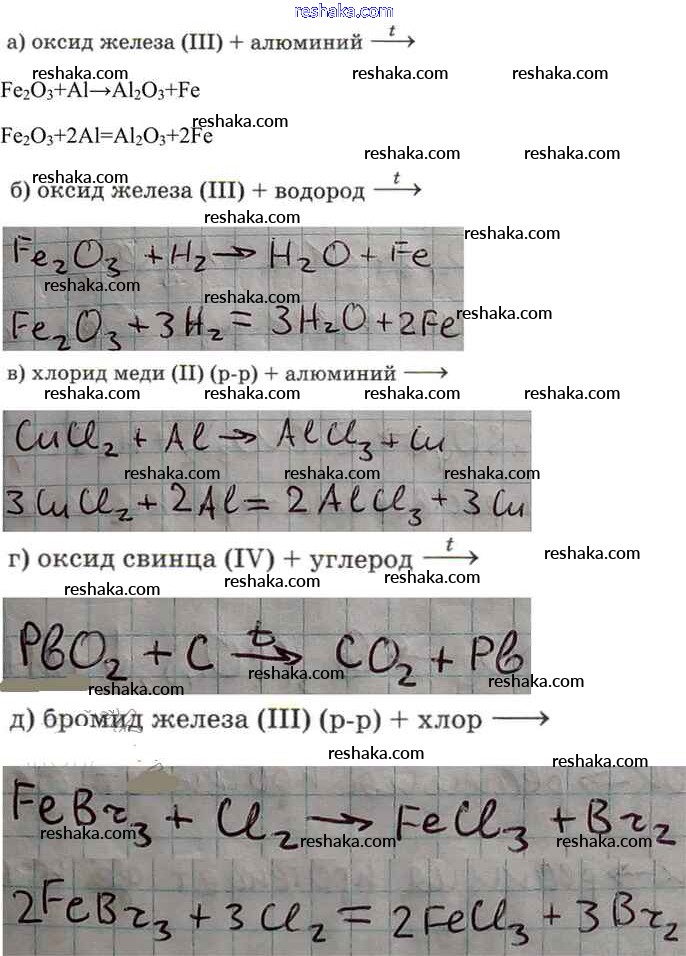 reshaka.com
а) оксид железа (III) + алюминий t →
reshaka.com reshaka.com reshaka.com
Fe₂O₃+Al→Al₂O₃+Fe
reshaka.com
Fe₂O₃+2Al=Al₂O₃+2Fe
reshaka.com reshaka.com
б) оксид железа (III) + водород t →
reshaka.com
reshaka.com
Fe₂O₃ + H₂ → H₂O + Fe
reshaka.com reshaka.com
reshaka.com
Fe₂O₃ + 3H₂ = 3H₂O + 2Fe
в) хлорид меди (II) (р-р) + алюминий →
reshaka.com reshaka.com reshaka.com reshaka.com
CuCl₂ + Al → AlCl₃ + Cu
reshaka.com reshaka.com reshaka.com
3CuCl₂ + 2Al = 2AlCl₃ + 3Cu
г) оксид свинца (IV) + углерод t →
reshaka.com
reshaka.com reshaka.com
PbO₂ + C t → CO₂ + Pb
reshaka.com reshaka.com reshaka.com
д) бромид железа (III) (р-р) + хлор →
reshaka.com
FeBr₃ + Cl₂ → FeCl₃ + Br₂
reshaka.com reshaka.com reshaka.com
reshaka.com
2FeBr₃ + 3Cl₂ = 2FeCl₃ + 3Br₂